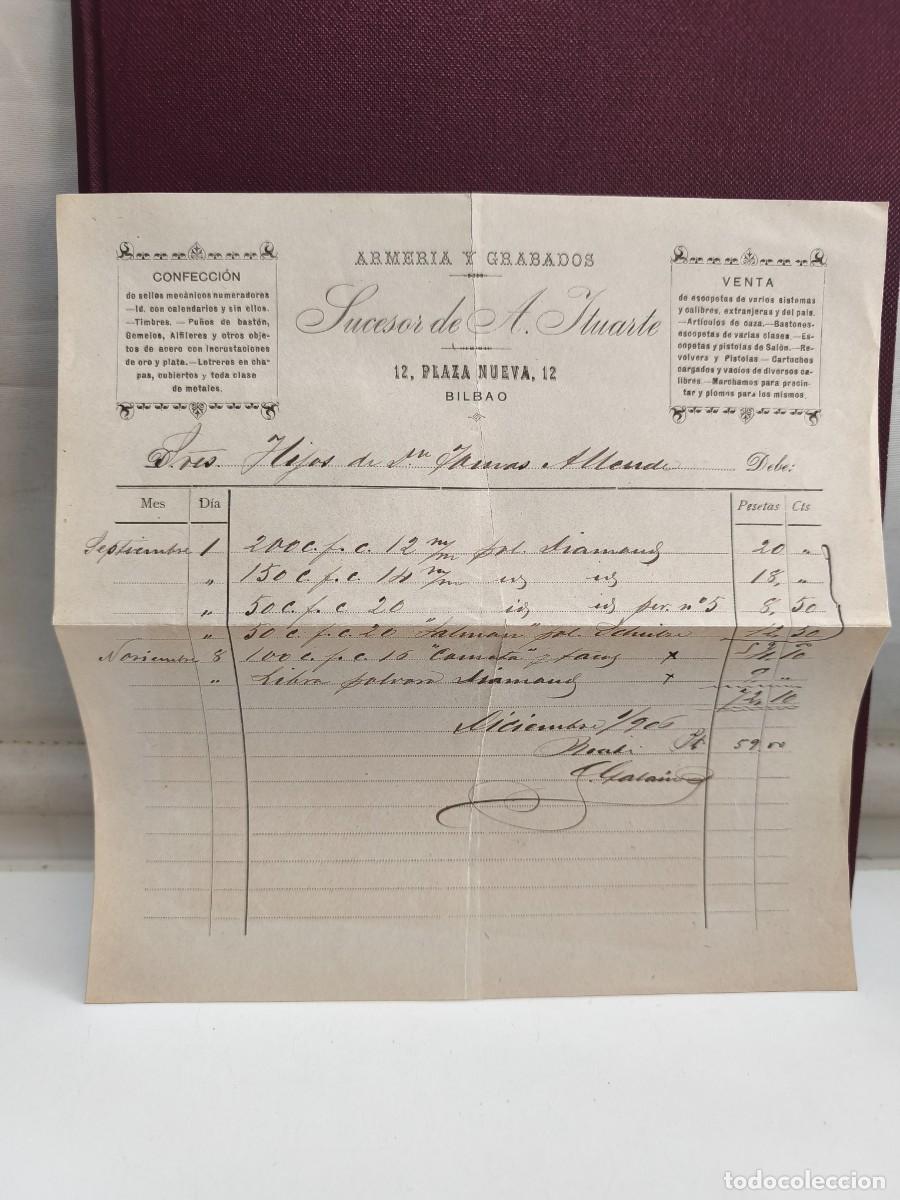 ARMERIA Y GRABADOS
Sucesor de A. Ituarte
12, PLAZA NUEVA, 12
BILBAO
CONFECCIÓN
de sellos mecánicos numeradores
—Id. con calendarios y sin ellos.
—Timbres. — Puños de bastón,
Gemelos, Alfileres y otros obje-
tos de acero con incrustaciones
de oro y plata.—Letreros en cha-
pas, cubiertos y toda clase
de metales.
VENTA
de escopetas de varios sistemas
y calibres, extranjeras y del país.
—Artículos de caza.—Bastones-
escopetas de varias clases.—Es-
copetas y pistolas de Salón.—Re-
volvers y Pistolas — Cartuchos
cargados y vacíos de diversos ca-
libres.—Marchamos para precin-
tar y plomos para los mismos.
Sres. Hijos de Dn Tomas Allende Debe:
Mes Día Pesetas Cts
Septiembre 1 200 c. f. c. 12 m/m pol. Diamond 20 "
" 150 c. f. c. 14 m/m id id 18, "
" 50 c. f. c. 20 id id per. nº 5 8, 50
" 50 c. f. c. 20 "Salmon" pol. 12 50
Noviembre 8 100 c. f. c. 16 "Cometa" x
" Libra polvora Diamond x
72, 10
Diciembre 1/906
Recibi Pt 59.00